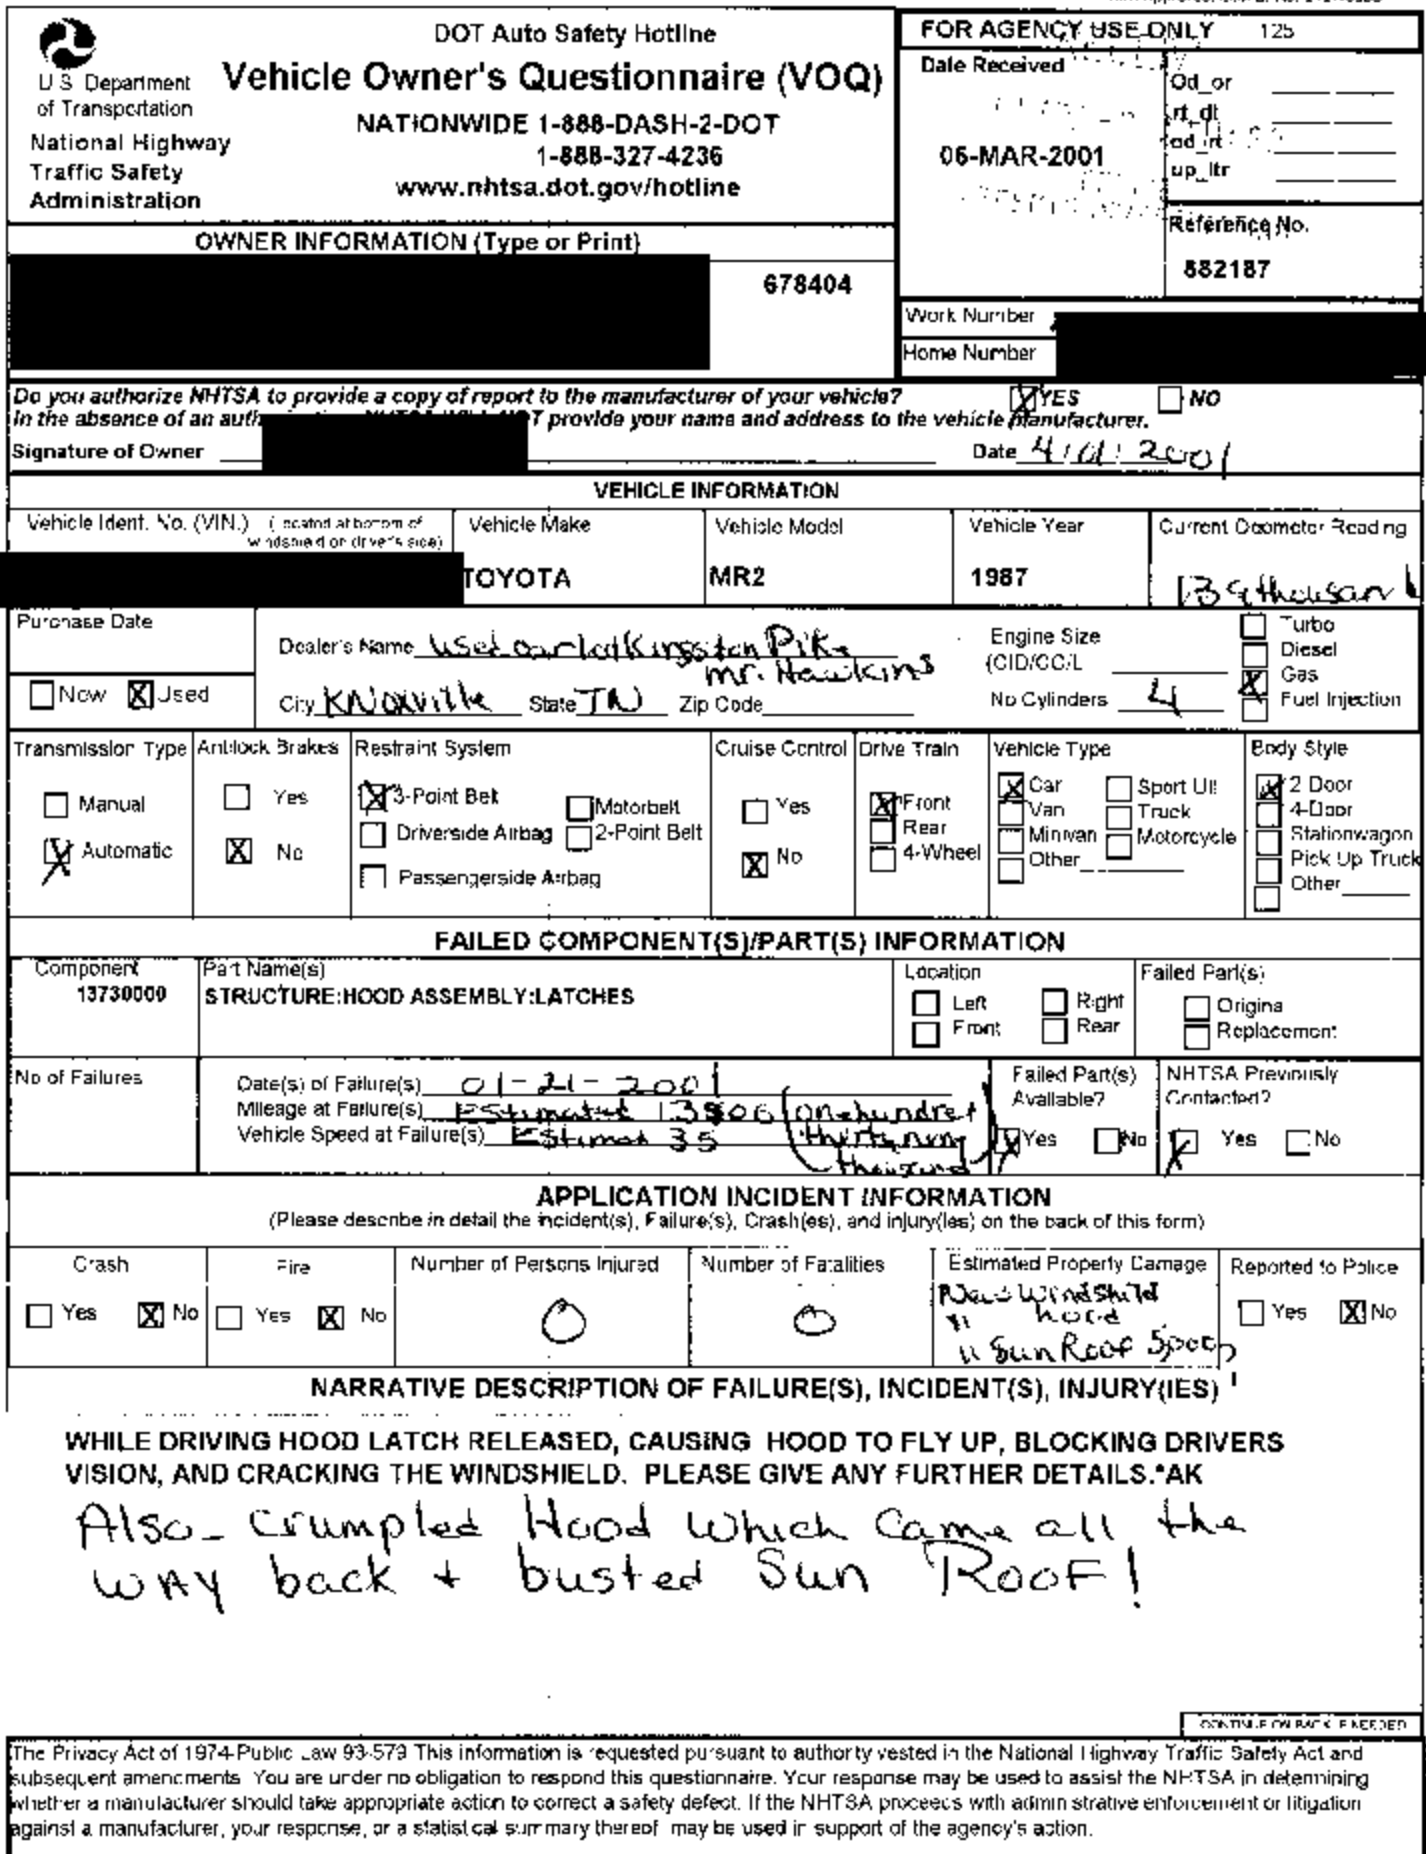 DOT Auto Safety Hotline
Vehicle Owner's Questionnaire (VOQ)
NATIONWIDE 1-888-DASH-2-DOT
1-888-327-4236
www.nhtsa.dot.gov/hotline
U S Department
of Transportation
National Highway
Traffic Safety
Administration
FOR AGENCY USE ONLY 125
Date Received
06-MAR-2001
Od_or
rt_dt
od_rt
up_ltr
Reference No.
882187
OWNER INFORMATION (Type or Print)
678404
Work Number
Home Number
Do you authorize NHTSA to provide a copy of report to the manufacturer of your vehicle? YES NO
In the absence of an provide your name and address to the vehicle manufacturer.
Signature of Owner Date 2001
VEHICLE INFORMATION
Vehicle Ident. No. (VIN.) (Located at bottom of
windshield on driver's side)
Vehicle Make
TOYOTA
Vehicle Model
MR2
Vehicle Year
1987
Current Odometer Reading
139 thousan
Purchase Date
New Used
Dealer's Name Used car lot Kingston Pike
mr. Hawkins
City Knoxville State TN Zip Code
Engine Size
(CID/CC/L
No Cylinders 4
Turbo
Diesel
Gas
Fuel Injection
Transmission Type
Manual
Automatic
Antilock Brakes
Yes
No
Restraint System
3-Point Belt Motorbelt
Driverside Airbag 2-Point Belt
Passengerside Airbag
Cruise Control
Yes
No
Drive Train
Front
Rear
4-Wheel
Vehicle Type
Car Sport Util
Van Truck
Minivan Motorcycle
Other
Body Style
2 Door
4-Door
Stationwagon
Pick Up Truck
Other
FAILED COMPONENT(S)/PART(S) INFORMATION
Component
13730000
Part Name(s)
STRUCTURE:HOOD ASSEMBLY:LATCHES
Location
Left Right
Front Rear
Failed Part(s)
Origina
Replacement
No of Failures
Date(s) of Failure(s) 01-21-2001
Mileage at Failure(s) Estimated (one hundred
Vehicle Speed at Failure(s) Estimat 35 thirty nine
thousand)
Failed Part(s)
Available?
Yes No
NHTSA Previously
Contacted?
Yes No
APPLICATION INCIDENT INFORMATION
(Please describe in detail the incident(s), Failure(s), Crash(es), and injury(ies) on the back of this form)
Crash
Yes No
Fire
Yes No
Number of Persons Injured
0
Number of Fatalities
0
Estimated Property Damage
New Windshild
" hood
" Sun Roof
Reported to Police
Yes No
NARRATIVE DESCRIPTION OF FAILURE(S), INCIDENT(S), INJURY(IES)
WHILE DRIVING HOOD LATCH RELEASED, CAUSING HOOD TO FLY UP, BLOCKING DRIVERS
VISION, AND CRACKING THE WINDSHIELD. PLEASE GIVE ANY FURTHER DETAILS.*AK
Also - crumpled Hood which came all the
way back + busted Sun Roof!
CONTINUE ON BACK IF NEEDED
The Privacy Act of 1974-Public Law 93-579 This information is requested pursuant to authority vested in the National Highway Traffic Safety Act and
subsequent amendments You are under no obligation to respond this questionnaire. Your response may be used to assist the NHTSA in determining
whether a manufacturer should take appropriate action to correct a safety defect. If the NHTSA proceeds with administrative enforcement or litigation
against a manufacturer, your response, or a statistical summary thereof may be used in support of the agency's action.